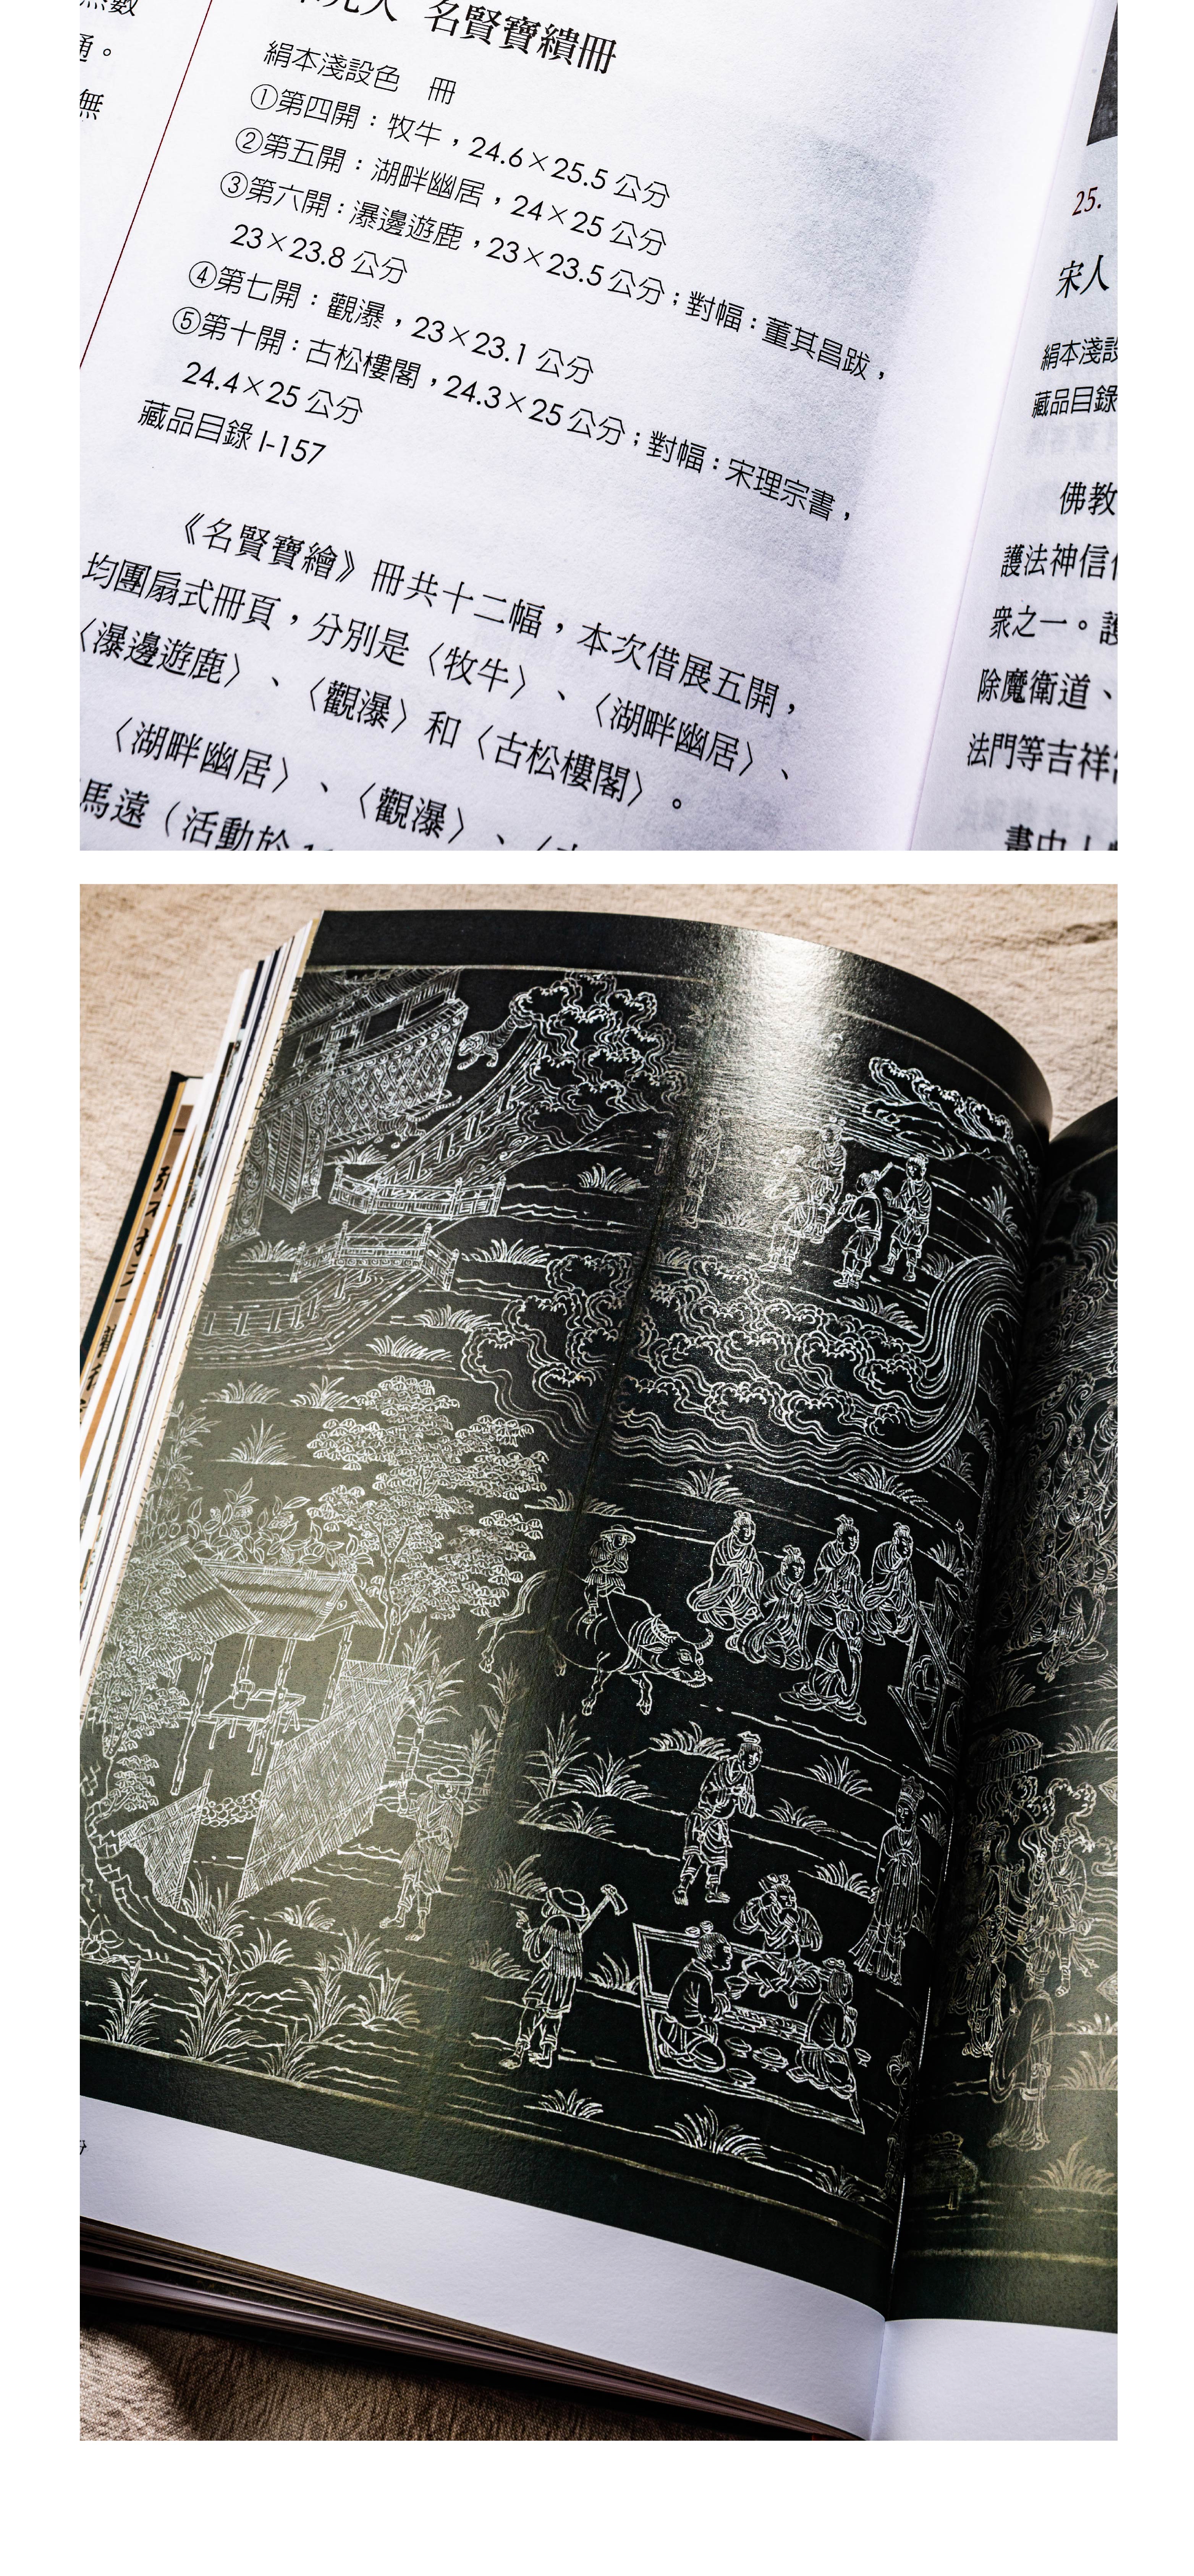 數
通。
無
名賢寶繢冊
絹本淺設色 冊
①第四開：牧牛，24.6×25.5 公分
②第五開：湖畔幽居，24×25 公分
③第六開：瀑邊遊鹿，23×23.5 公分；對幅：董其昌跋，
23×23.8 公分
④第七開：觀瀑，23×23.1 公分
⑤第十開：古松樓閣，24.3×25 公分；對幅：宋理宗書，
24.4×25 公分
藏品目錄 I-157
《名賢寶繪》冊共十二幅，本次借展五開，
均團扇式冊頁，分別是〈牧牛〉、〈湖畔幽居〉、
〈瀑邊遊鹿〉、〈觀瀑〉和〈古松樓閣〉。
〈湖畔幽居〉、〈觀瀑〉、〈
馬遠（活動於
25.
宋人
絹本淺設
藏品目錄
佛教
護法神信
眾之一。護
除魔衛道、
法門等吉祥
畫中人